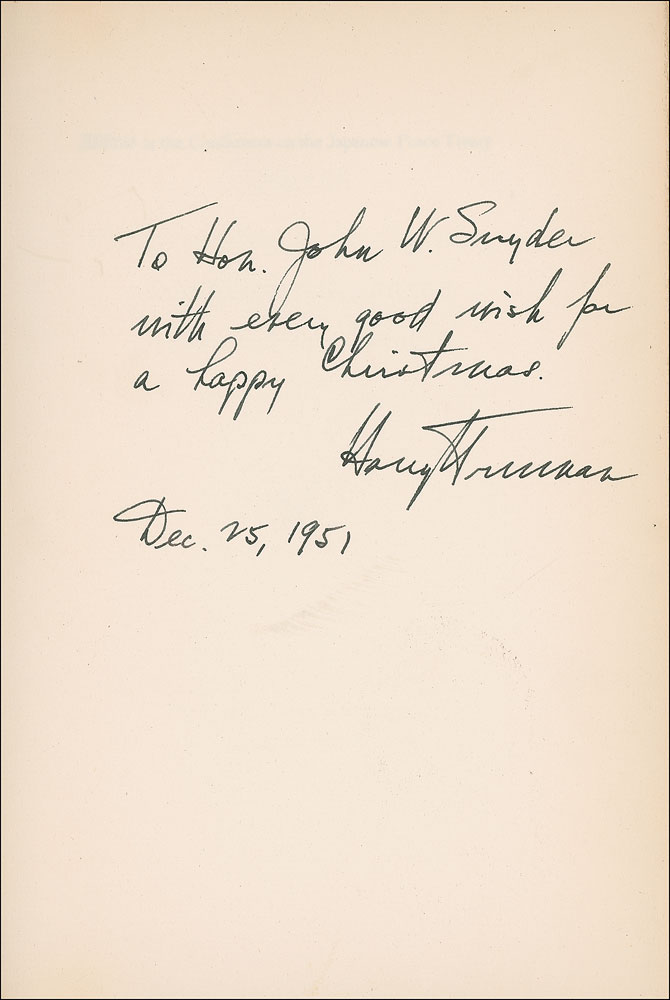 To Hon. John W. Snyder
with every good wish for
a happy Christmas.
Harry Truman
Dec. 25, 1951